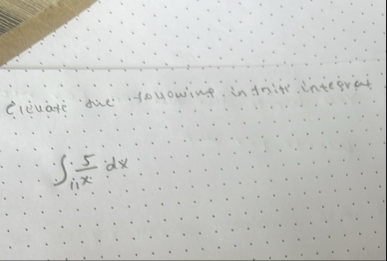 Eleuate the following infinite integral
∫ 5/11x dx